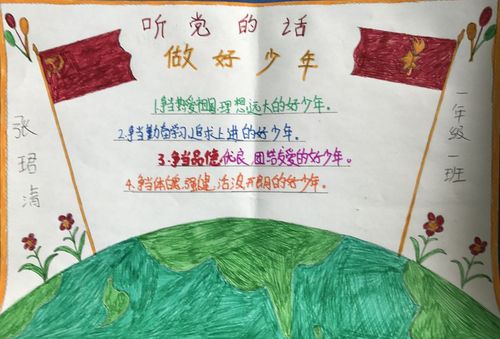 听党的话
做好少年
1.争当热爱祖国,理想远大的好少年。
2.争当勤奋学习,追求上进的好少年。
3.争当品德优良,团结友爱的好少年。
4.争当体魄强健,活泼开朗的好少年。
张珺涵
一年级一班